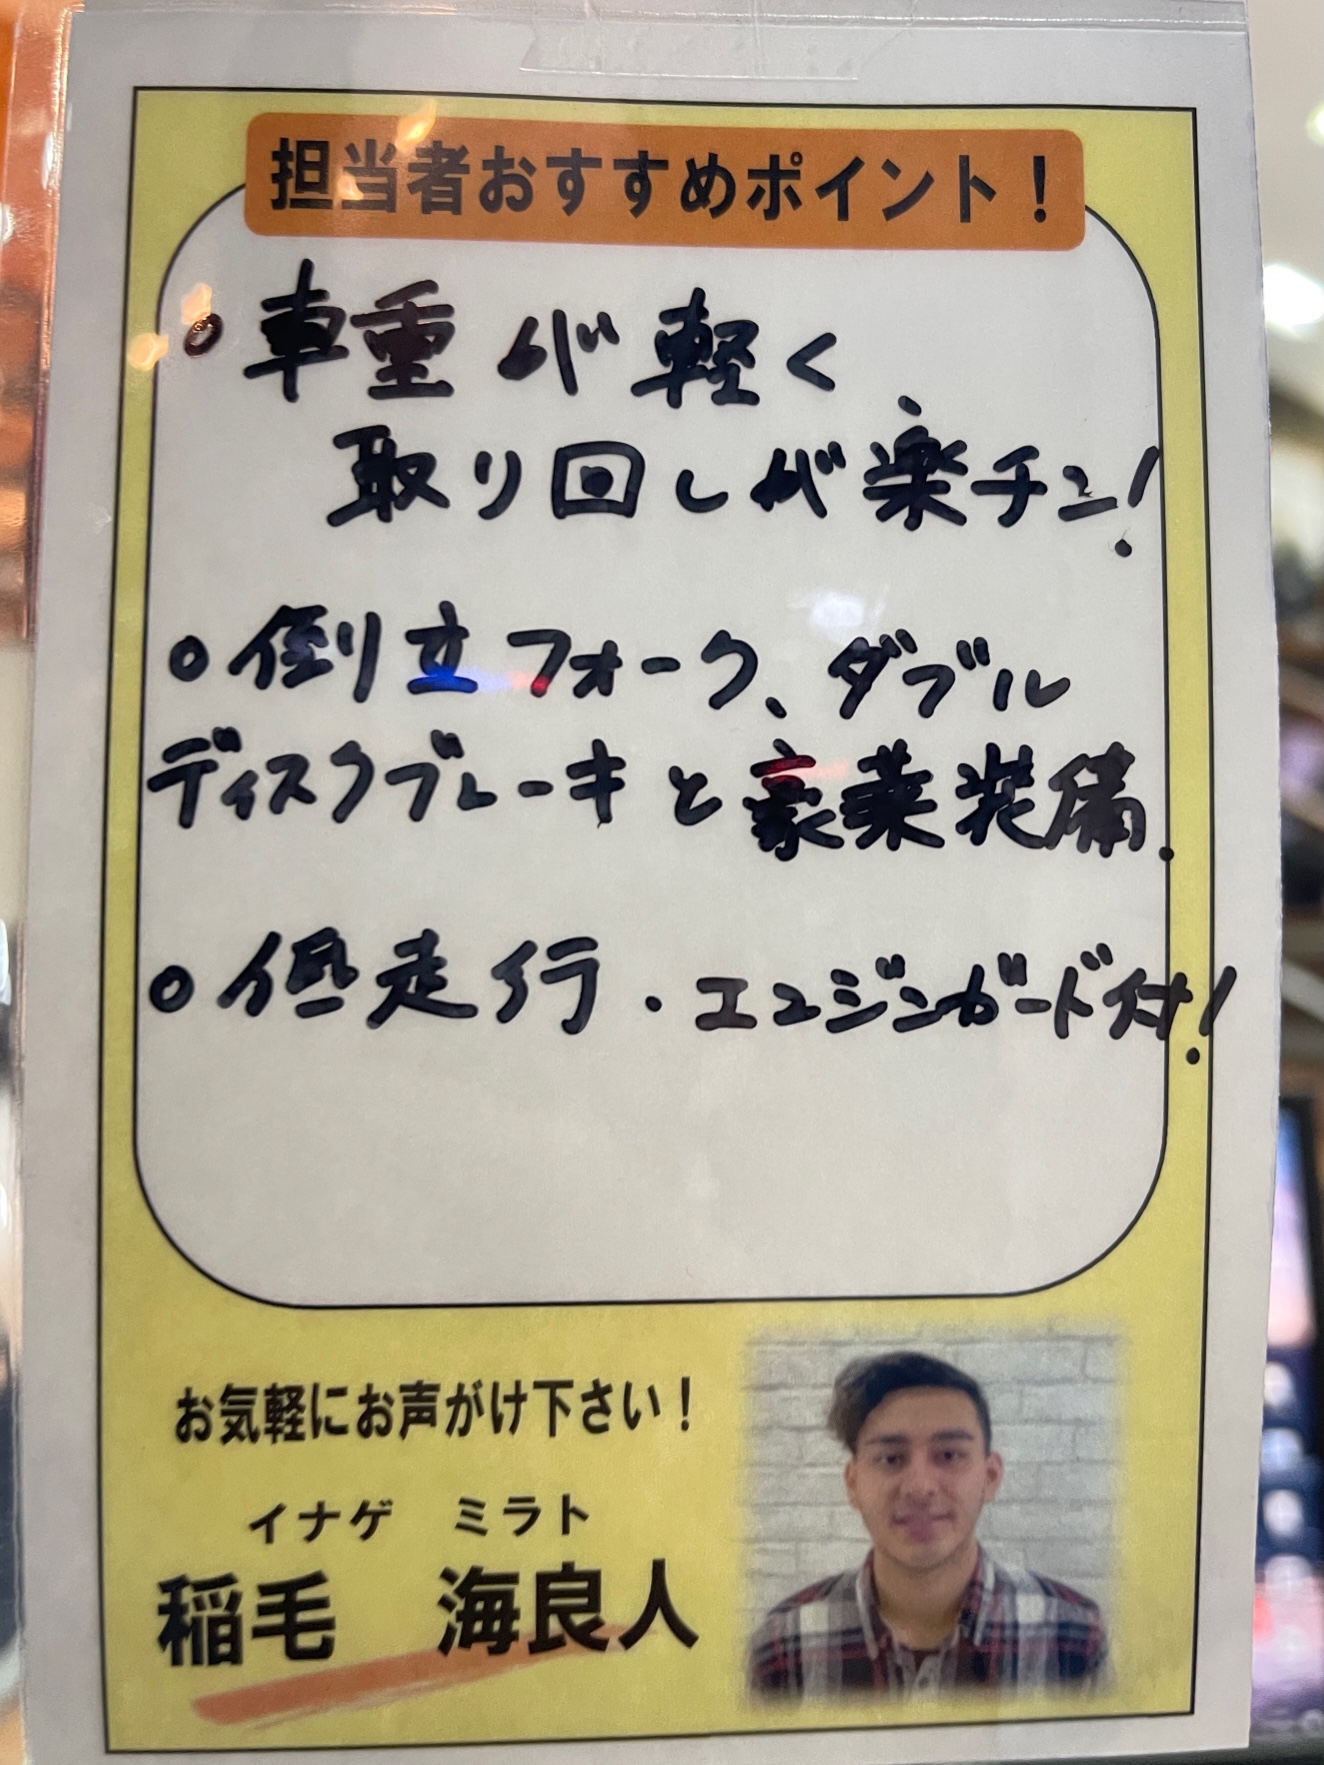 担当者おすすめポイント！
○車重が軽く、
取り回しが楽チン!
○倒立フォーク、ダブル
ディスクブレーキと豪華装備.
○低走行・エンジンガード付!
お気軽にお声がけ下さい！
イナゲ ミラト
稲毛 海良人